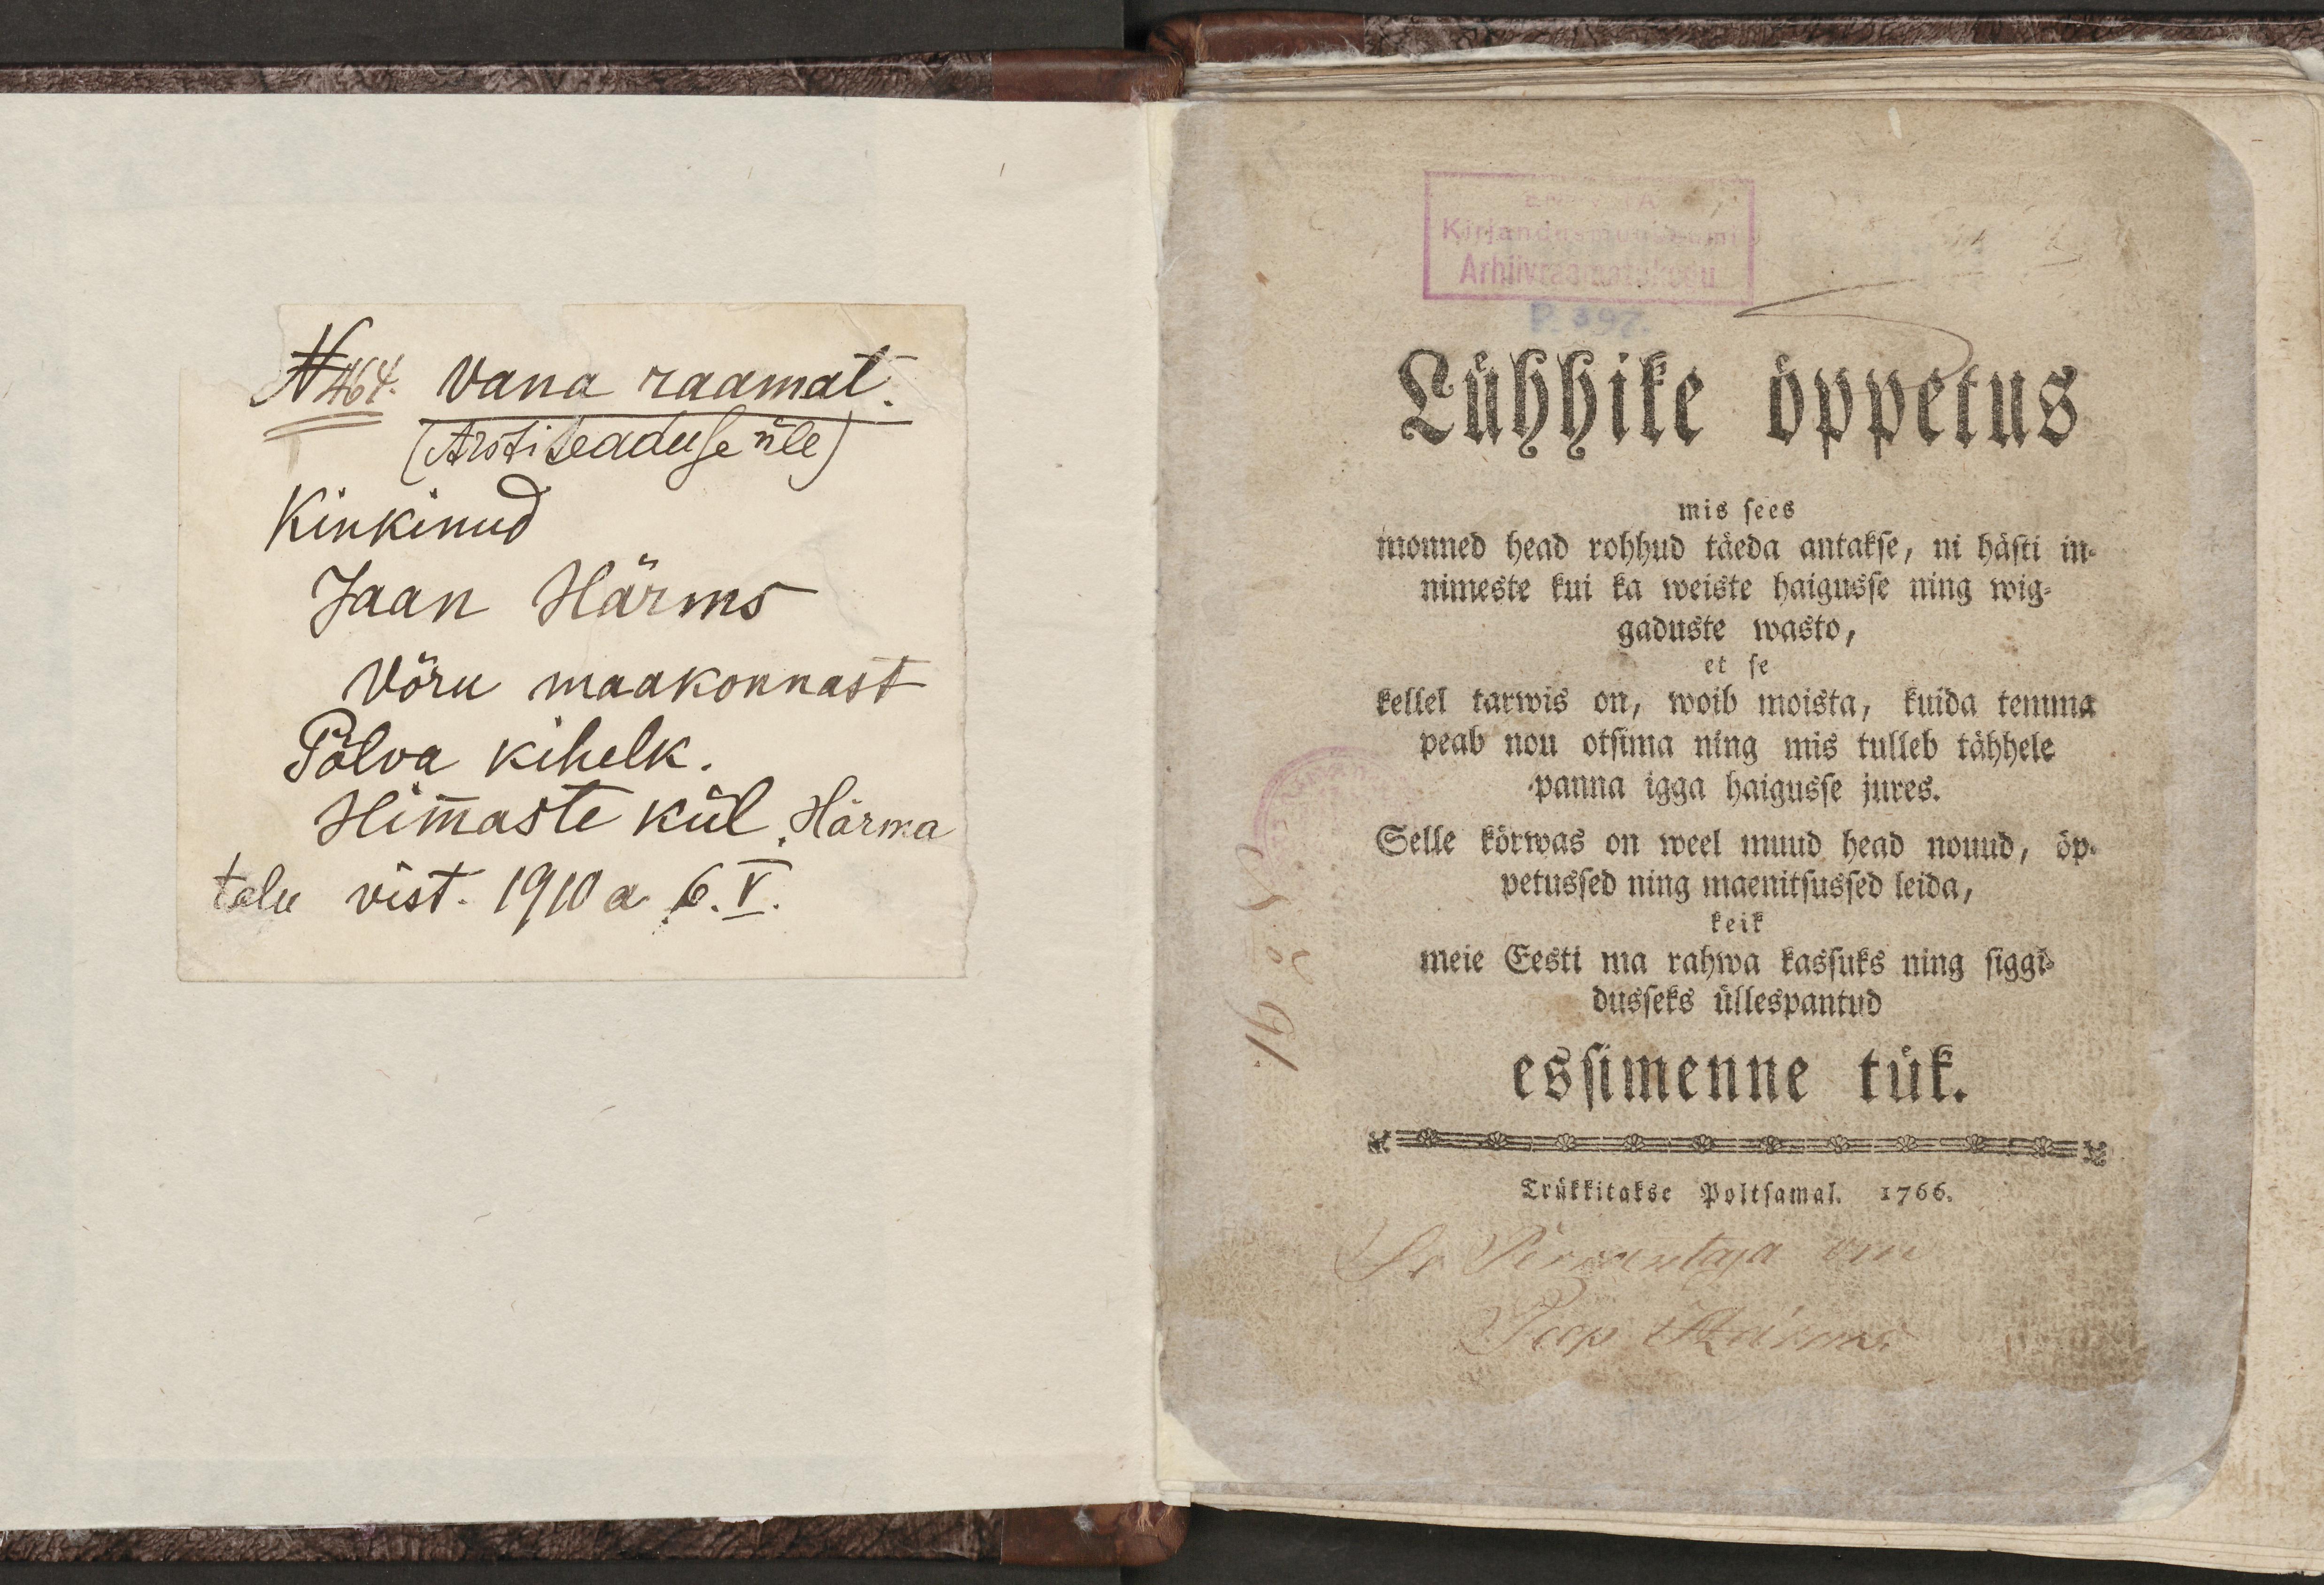 N 464. Vana raamat.
(Arstiteaduse üle)
Kinkinud
Jaan Härms
Võru maakonnast
Põlva kihelk.
Him̅aste kül. Härma
talu vist. 1910 a. 6. V.
Kirjandusmuuseumi
Arhiivraamatukogu
P. 397.
Lühhike öppetus
mis sees
monned head rohhud täeda antakse, ni hästi in-
nimeste kui ka weiste haigusse ning wig-
gaduste wasto,
et se
kellel tarwis on, woib moista, kuida temma
peab nou otsima ning mis tulleb tähhele
panna igga haigusse jures.
Selle körwas on weel muud head nouud, öp-
petussed ning maenitsussed leida,
keik
meie Eesti ma rahwa kassuks ning siggi-
dusseks üllespantud
essimenne tük.
Trükkitakse Poltsamal. 1766.
om